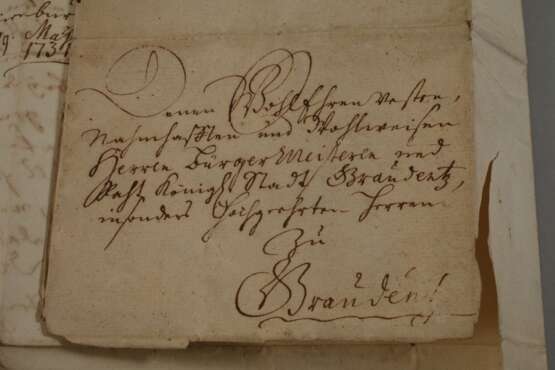 May
173
Denen WohlEhren Vesten,
Nahmhafften und Wohlweisen
Herren BürgerMeisteren und
Raht Königl. Stadt Graudentz,
insonders Hochgeehrten Herren
Zu
Graudentz